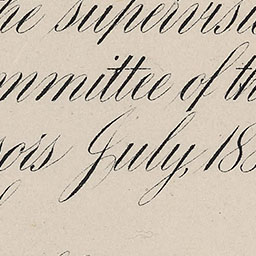 he supervisi
ommittee of th
ois July, 18